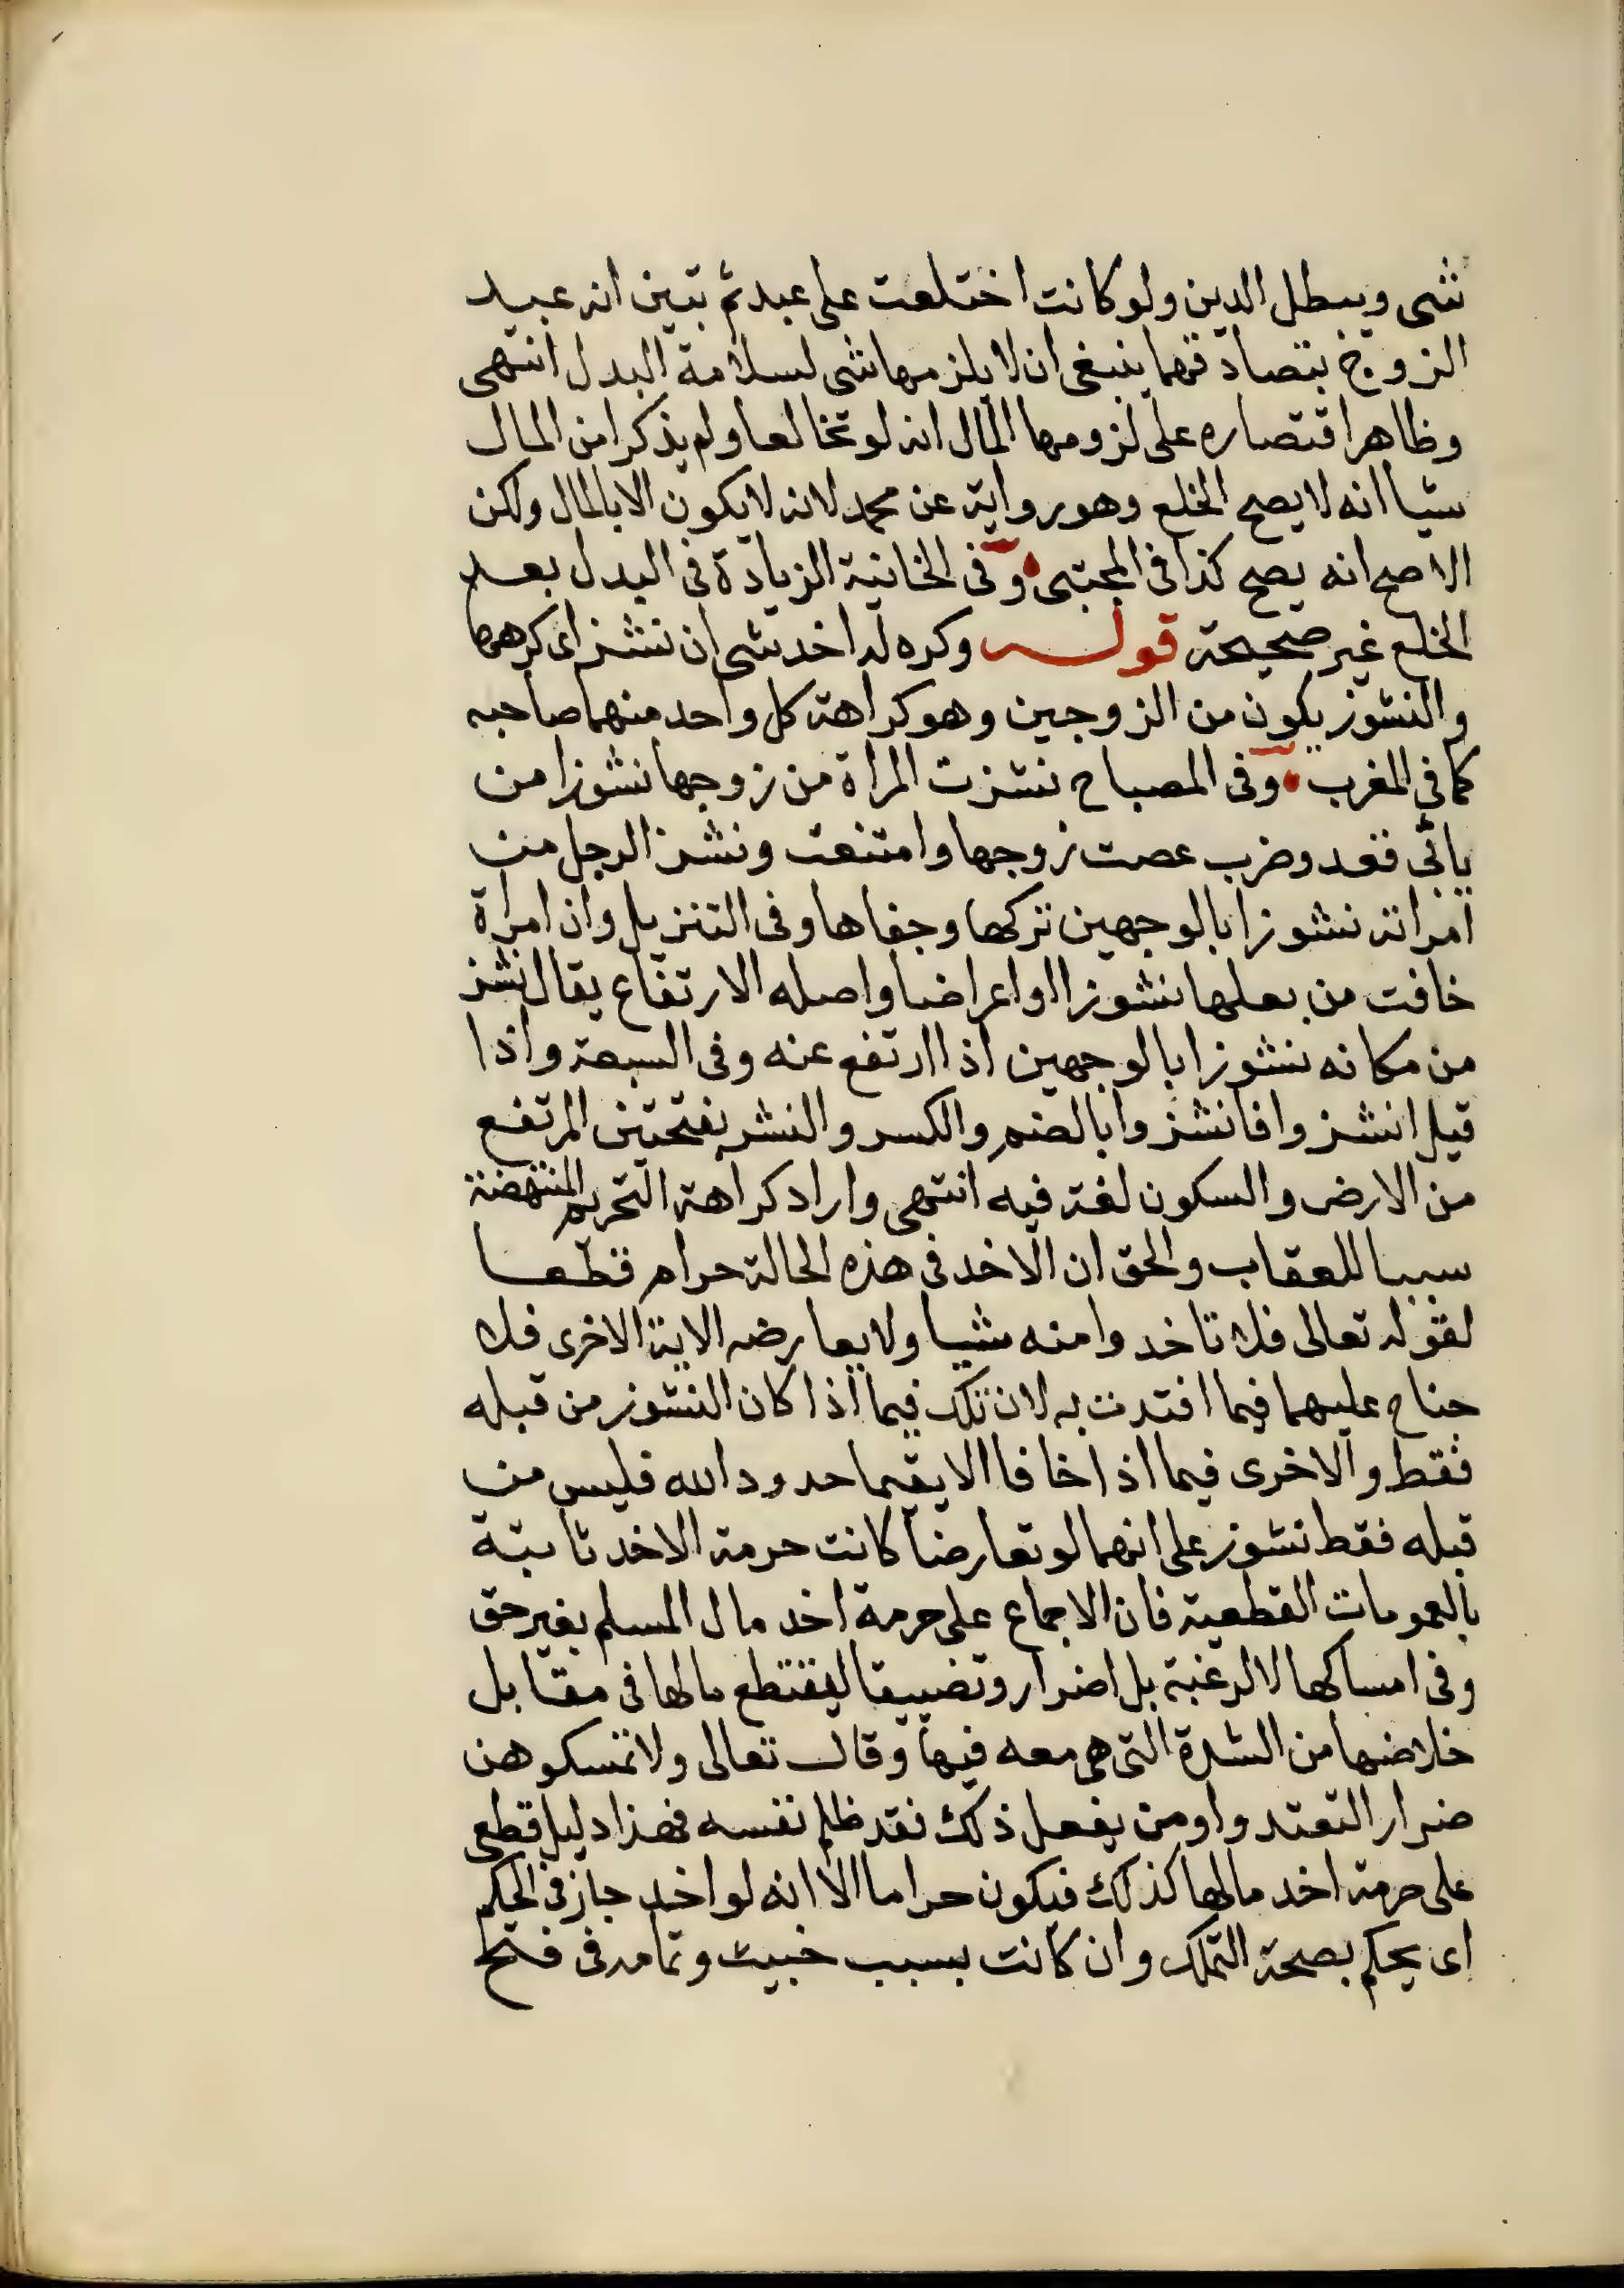 شى ويبطل الدين ولو كانت اختلعت على عبد ثم تبين انه عبد
الزوج بتصادقهما ينبغى ان لا يلزمها شى لسلامة البدل انتهى
وظاهر اقتصاره على لزومها المال انه لو تخالعا ولم يذكرا من المال
شيا انه لا يصح الخلع وهو رواية عن محمد لانه لا يكون الا بالمال ولكن
الاصح انه يصح كذا فى المجتبى وفى الخانية الزيادة فى البدل بعد
الخلع غير صحيحة قوله وكره له اخد شى ان نشز اى كرهها
والنشوز يكون من الزوجين وهو كراهة كل واحد منهما صاحبه
كما فى المغرب وفى المصباح نشزت المراة من زوجها نشوزا من
بابى قعد وضرب عصت زوجها وامتنعت ونشز الرجل من
امراته نشوزا بالوجهين تركها وجفاها وفى التنزيل وان امراة
خافت من بعلها نشوزا او اعراضا واصله الارتفاع يقال نشز
من مكانه نشوزا بالوجهين اذا ارتفع عنه وفى السبعة واذا
قيل انشزوا فانشزوا بالضم والكسر والنشز بفتحتين المرتفع
من الارض والسكون لغة فيه انتهى واراد كراهة التحريم المنتهضة
سببا للعقاب والحق ان الاخد فى هذه الحالة حرام قطعا
لقوله تعالى فلا تاخدوا منه شيا ولا يعارضه الاية الاخرى فلا
جناح عليهما فيما افتدت به لان تلك فيما اذا كان النشوز من قبله
فقط والاخرى فيما اذا خافا الا يقيما حدود الله فليس من
قبله فقط نشوز على انهما لو تعارضا كانت حرمة الاخد ثابتة
بالعمومات القطعية فان الاجماع على حرمة اخد مال المسلم بغير حق
وفى امساكها لا لرغبة بل اضرار وتضييقا ليقتطع مالها فى مقابل
خلاصها من الشدة التى هى معه فيها وقال تعالى ولا تمسكوهن
ضرارا لتعتدوا ومن يفعل ذلك فقد ظلم نفسه فهذا دليل قطعى
على حرمة اخد مالها كذلك فيكون حراما الا انه لو اخد جاز فى الحكم
اى يحكم بصحة التملك وان كانت بسبب خبيث وتمامه فى فتح